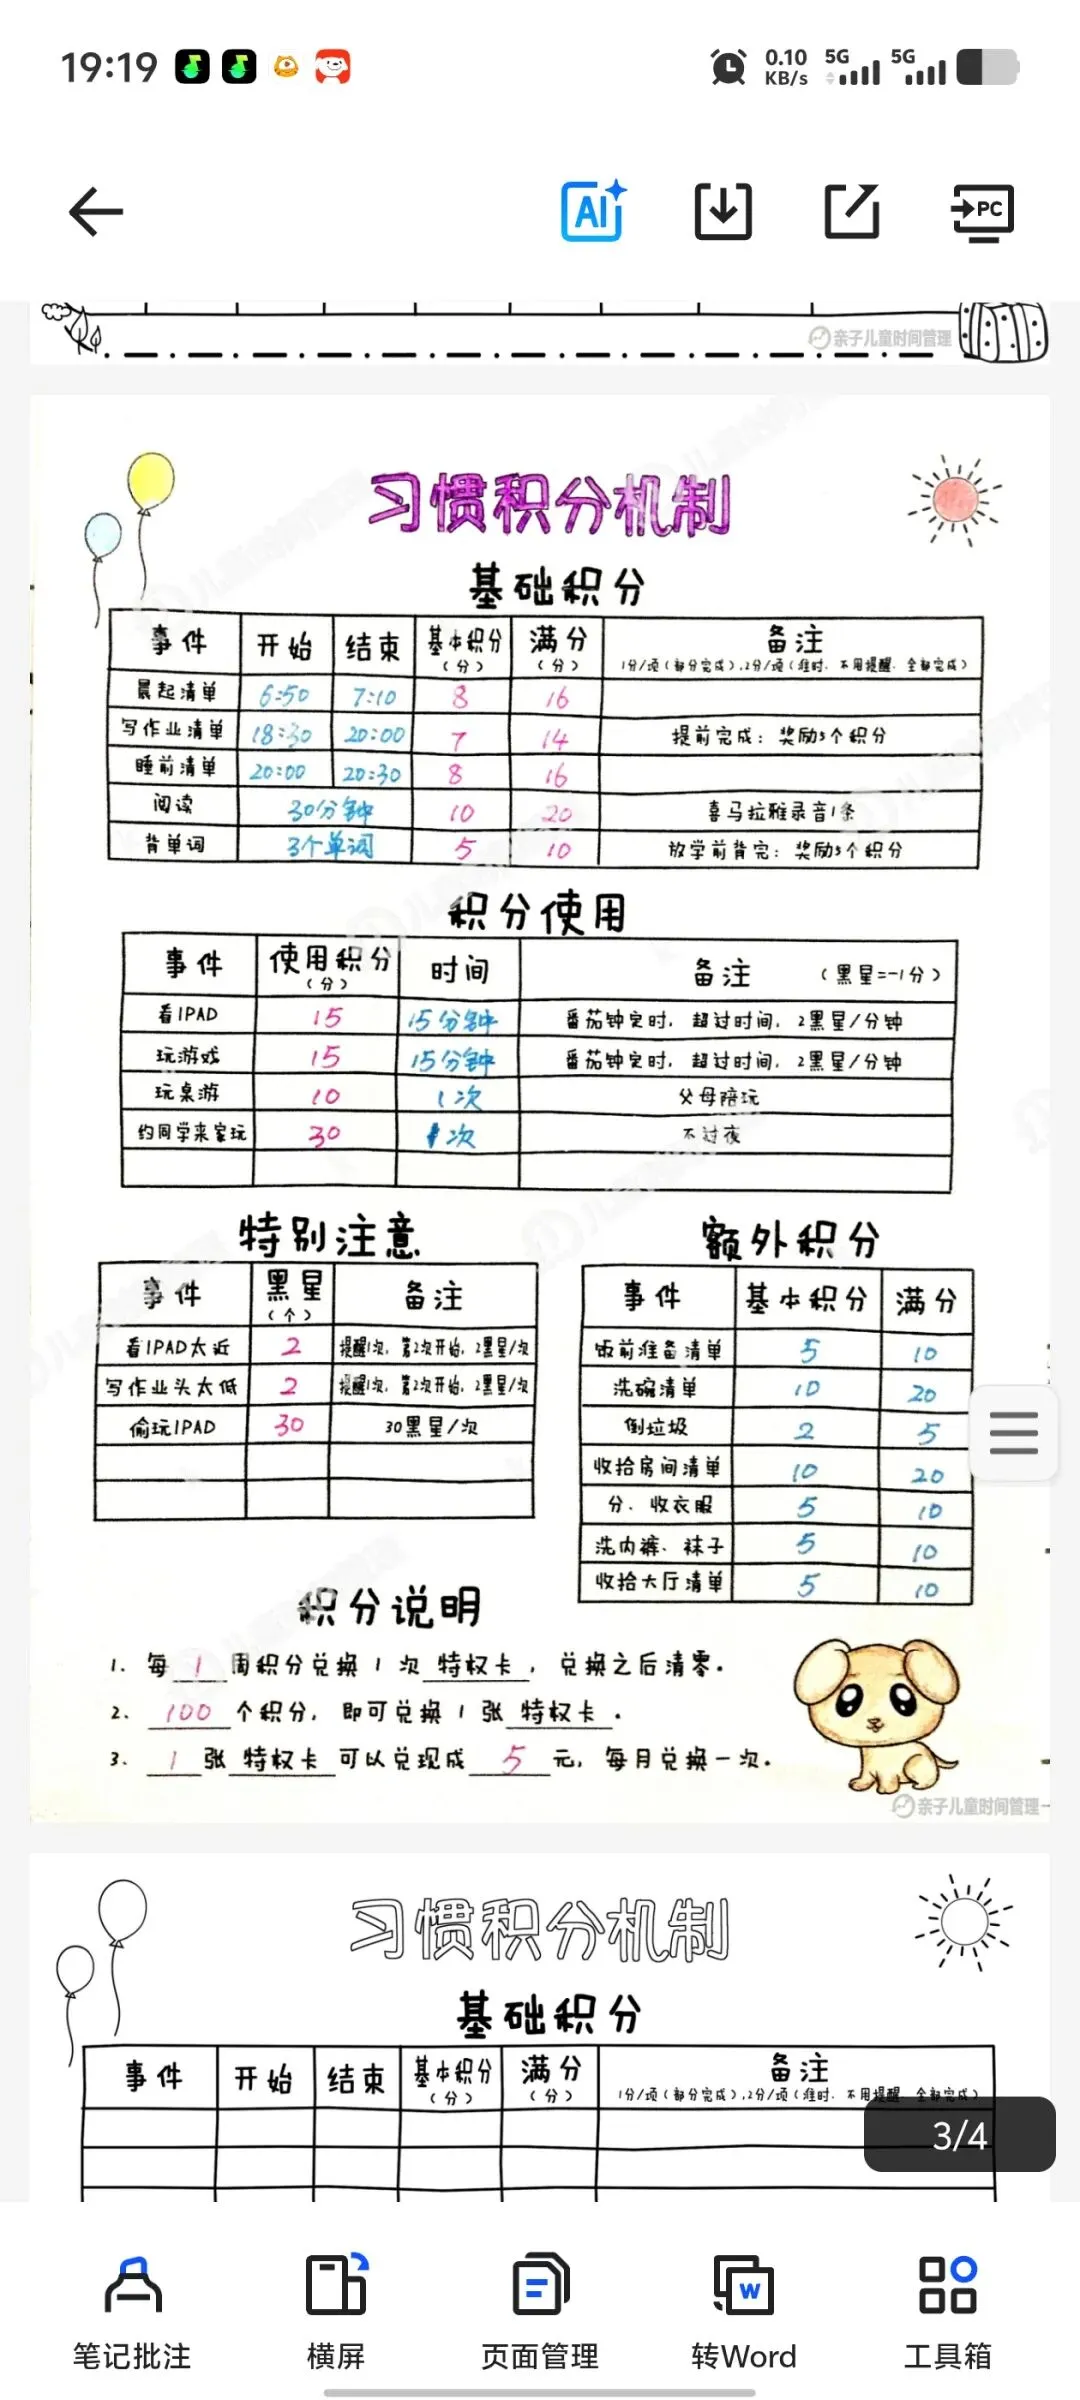 19:19
0.10 KB/s 5G 5G
AI PC
亲子儿童时间管理
习惯积分机制
基础积分
事件 开始 结束 基本积分(分) 满分(分) 备注
1分/项(部分完成),2分/项(准时、不用提醒、全部完成)
晨起清单 6:50 7:10 8 16
写作业清单 18:30 20:00 7 14 提前完成：奖励5个积分
睡前清单 20:00 20:30 8 16
阅读 30分钟 10 20 喜马拉雅录音1条
背单词 3个单词 5 10 放学前背完：奖励5个积分
积分使用
事件 使用积分(分) 时间 备注 (黑星=-1分)
看IPAD 15 15分钟 番茄钟定时，超过时间，2黑星/分钟
玩游戏 15 15分钟 番茄钟定时，超过时间，2黑星/分钟
玩桌游 10 1次 父母陪玩
约同学来家玩 30 1次 不过夜
特别注意
事件 黑星(个) 备注
看IPAD太近 2 提醒1次，第2次开始，2黑星/次
写作业头太低 2 提醒1次，第2次开始，2黑星/次
偷玩IPAD 30 30黑星/次
额外积分
事件 基本积分 满分
饭前准备清单 5 10
洗碗清单 10 20
倒垃圾 2 5
收拾房间清单 10 20
分、收衣服 5 10
洗内裤、袜子 5 10
收拾大厅清单 5 10
积分说明
1. 每 1 周积分兑换1次特权卡，兑换之后清零。
2. 100 个积分，即可兑换1张特权卡。
3. 1 张特权卡可以兑现成 5 元，每月兑换一次。
亲子儿童时间管理
习惯积分机制
基础积分
事件 开始 结束 基本积分(分) 满分(分) 备注
1分/项(部分完成),2分/项(准时、不用提醒、全部完成)
3/4
笔记批注 横屏 页面管理 转Word 工具箱